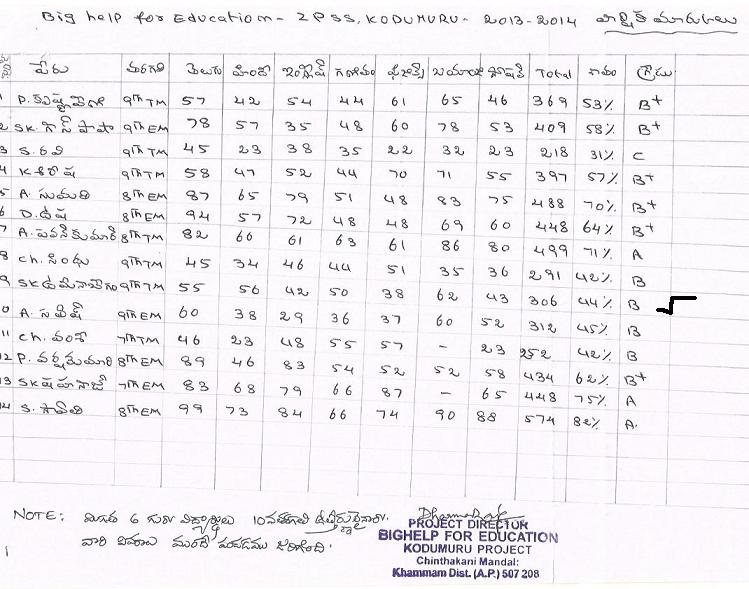 Big help for Education - ZPSS, KODUMURU - 2013-2014 వార్షిక మార్కులు
పేరు తరగతి తెలుగు హిందీ ఇంగ్లీష్ గణితం ఫిజిక్స్ బయాలజీ సోషల్ Total శాతం గ్రేడు
1 P. 9th TM 57 42 54 44 61 65 46 369 53% B+
2 SK. పాషా 9th EM 78 57 35 48 60 78 53 409 58% B+
3 S. రవి 9th TM 45 23 38 35 22 32 23 218 31% C
4 K శిరీష 9th TM 58 47 52 44 70 71 55 397 57% B+
5 A. సుమతి 8th EM 87 65 79 51 48 83 75 488 70% B+
6 D. ఉష 8th EM 94 57 72 48 48 69 60 448 64% B+
7 A. పవన్ కుమార్ 8th TM 82 66 61 63 61 86 80 499 71% A
8 Ch. సింధు 9th TM 45 34 46 44 51 35 36 291 42% B
9 SK 9th TM 55 56 42 50 38 62 43 306 44% B
10 A. 9th EM 60 38 29 36 37 60 52 312 45% B
11 Ch. వంశీ 7th TM 46 23 48 55 57 - 23 252 42% B
12 P. 8th EM 89 46 83 54 52 52 58 434 62% B+
13 SK షహనాజ్ 7th EM 83 68 79 66 87 - 65 448 75% A
14 S. 8th EM 99 73 84 66 74 90 88 574 82% A.
NOTE: మిగతా 6 గురు విద్యార్థులు 10వతరగతి
వారి వివరాలు ముందే పంపడము జరిగింది.
PROJECT DIRECTOR
BIGHELP FOR EDUCATION
KODUMURU PROJECT
Chinthakani Mandal:
Khammam Dist. (A.P.) 507 208